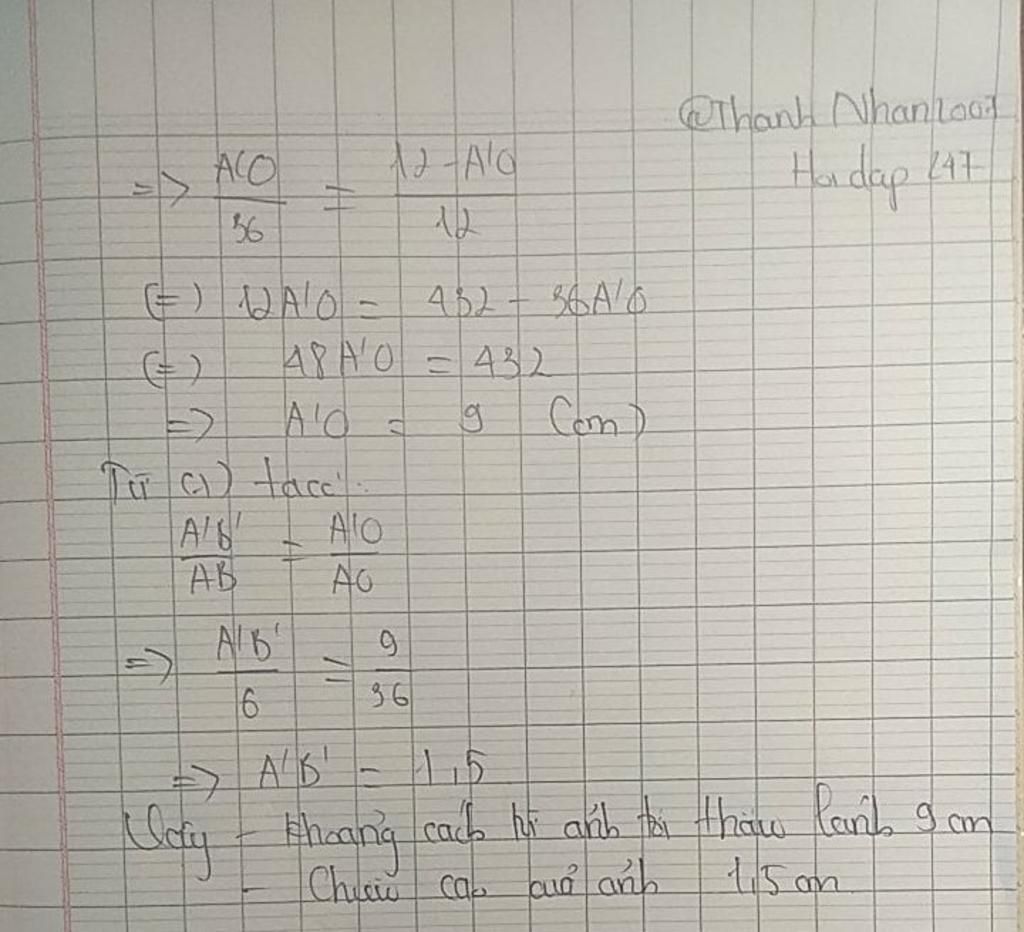 @Thanh Nhan2007
Hoidap 247
=> A'O/36 = 12-A'O/12
(=) 12A'O = 432 - 36A'O
(=) 48A'O = 432
=> A'O = 9 (cm)
Từ (1) ta có:
A'B'/AB = A'O/AO
=> A'B'/6 = 9/36
=> A'B' = 1,5
Vậy - Khoảng cách từ ảnh tới thấu kính 9 cm
- Chiều cao của ảnh 1,5 cm